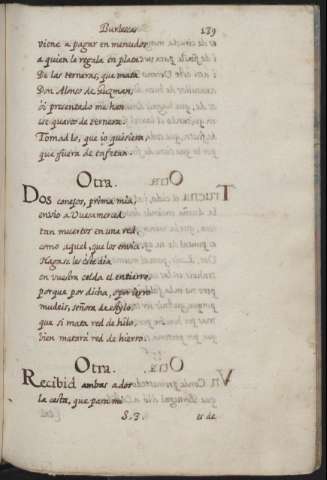 Burlescas 139
viene a pagar en menudos
a quien le regala en plata:
De las terneras, que mata
Don Alonso de Guzman,
oi presentado me han
ese quarto de ternera:
Tomadlo, que io quisiera,
que fuera de tafetan.
Otra.
Dos conejos, prima mia,
envio a Vuesamerced
tan muertos en una red,
como aquel, que los envia.
Hagase les este dia
en vuestra celda el entierro,
porque por dicha, o por ierro
mudeis, señora de estylo,
que si mata red de hilo,
bien matará red de hierro.
Otra.
Recibid ambas a dos
la cesta, que para mi
S.3. es de